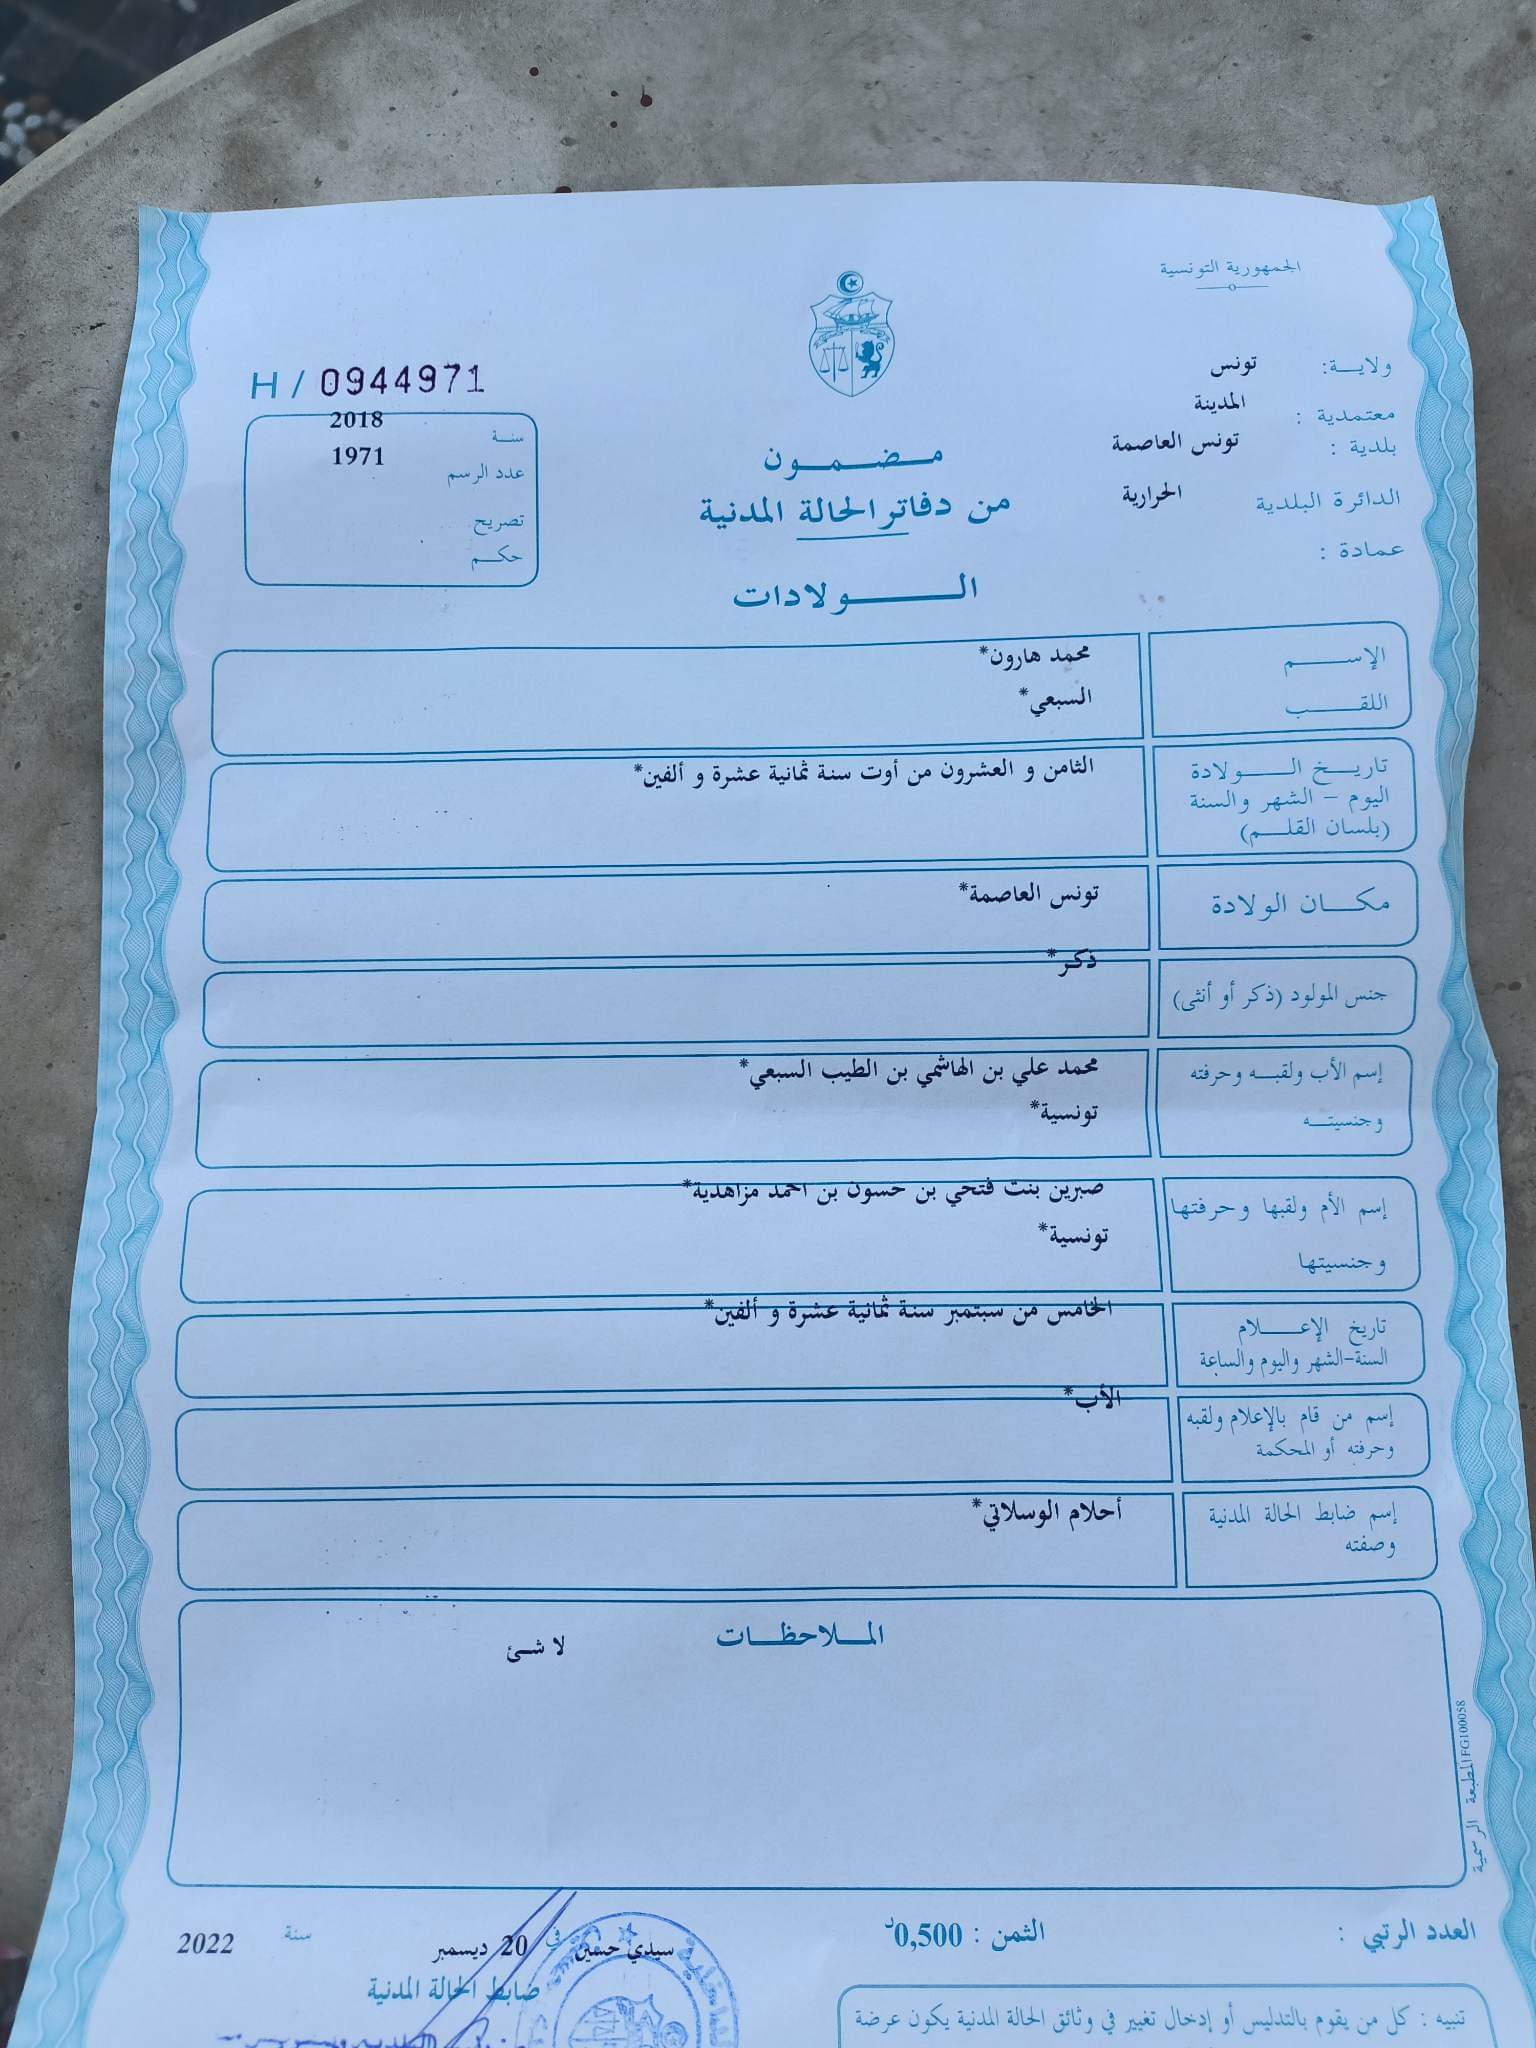 الجمهورية التونسية
ولاية: تونس
معتمدية : المدينة
بلدية : تونس العاصمة
الدائرة البلدية الحرارية
عمادة :
H / 0944971
سنة 2018
عدد الرسم 1971
تصريح
حكم
مضمون
من دفاتر الحالة المدنية
الولادات
الإسم محمد هارون*
اللقب السبعي*
تاريخ الولادة الثامن و العشرون من أوت سنة ثمانية عشرة و ألفين*
اليوم - الشهر والسنة
(بلسان القلم)
مكان الولادة تونس العاصمة*
جنس المولود (ذكر أو أنثى) ذكر*
إسم الأب ولقبه وحرفته محمد علي بن الهاشمي بن الطيب السبعي*
وجنسيته تونسية*
إسم الأم ولقبها وحرفتها صبرين بنت فتحي بن حسون بن احمد مزاهدية*
وجنسيتها تونسية*
تاريخ الإعلام الخامس من سبتمبر سنة ثمانية عشرة و ألفين*
السنة-الشهر واليوم والساعة
إسم من قام بالإعلام ولقبه الأب*
وحرفته أو المحكمة
إسم ضابط الحالة المدنية أحلام الوسلاتي*
وصفته
الملاحظات
لا شئ
المطبعة الرسمية FG100058
العدد الرتبي :
الثمن : 0,500د
سيدي حسين في 20 ديسمبر سنة 2022
ضابط الحالة المدنية
تنبيه : كل من يقوم بالتدليس أو إدخال تغيير في وثائق الحالة المدنية يكون عرضة